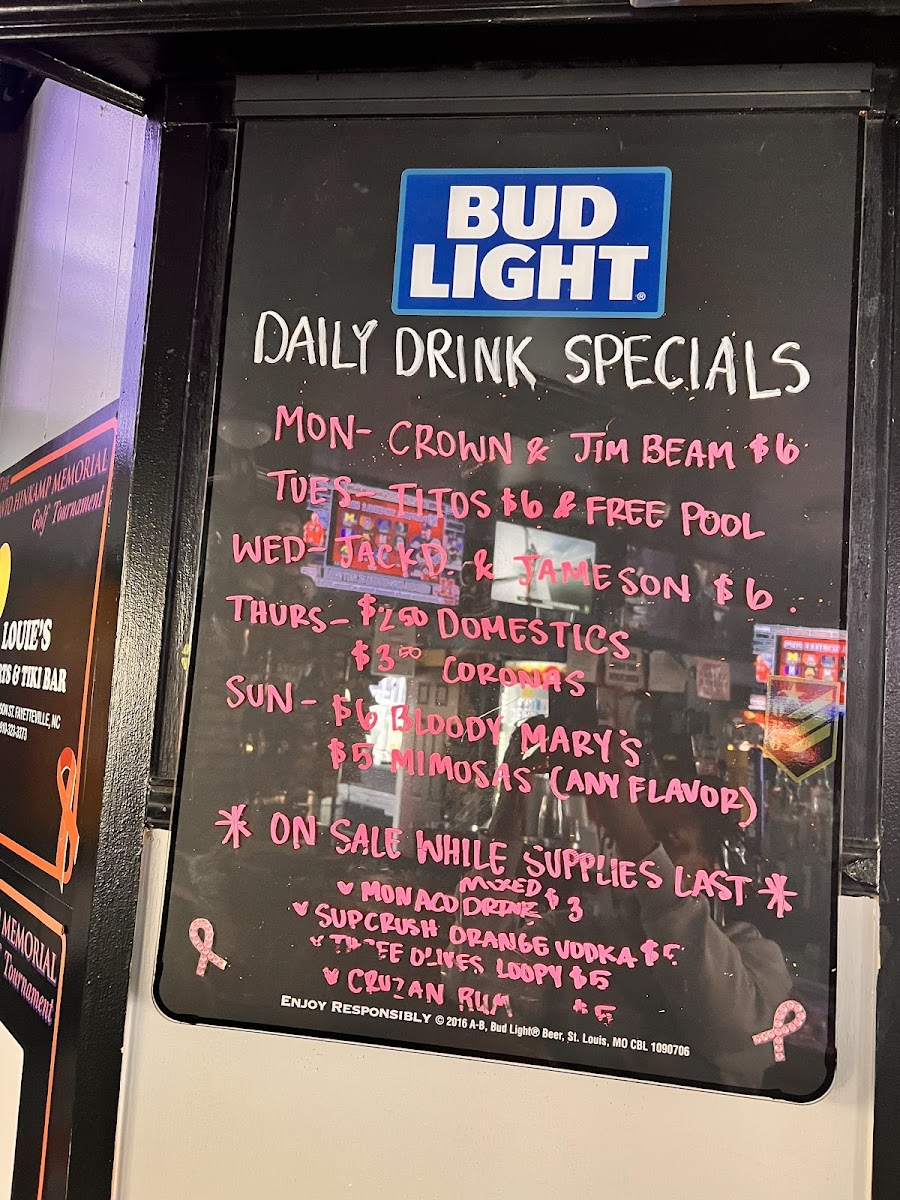 BUD
LIGHT®
DAILY DRINK SPECIALS
MON- CROWN & JIM BEAM $6
TUES- TITOS $6 & FREE POOL
WED- JACK D. & JAMESON $6.
THURS- $2.50 DOMESTICS
$3.50 CORONAS
SUN - $6 BLOODY MARY'S
$5 MIMOSAS (ANY FLAVOR)
* ON SALE WHILE SUPPLIES LAST *
MONACO MIXED DRINK $3
SUPCRUSH ORANGE VODKA $5
THREE OLIVES LOOPY $5
CRUZAN RUM $5
ENJOY RESPONSIBLY © 2016 A-B, Bud Light® Beer, St. Louis, MO CBL 1090706
THE
HINKAMP MEMORIAL
Golf Tournament
LOUIE'S
& TIKI BAR
ST. FAYETTEVILLE, NC
MEMORIAL
Tournament